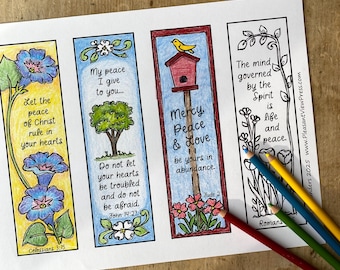 Let the
peace
of Christ
rule in
your hearts
Colossians 3:15
My peace
I give
to you...
Do not let
your hearts
be troubled
and do not
be afraid.
John 14:27
Mercy
Peace
& Love
be yours in
abundance.
The mind
governed
by the
Spirit
is
life
and
peace.
Romans